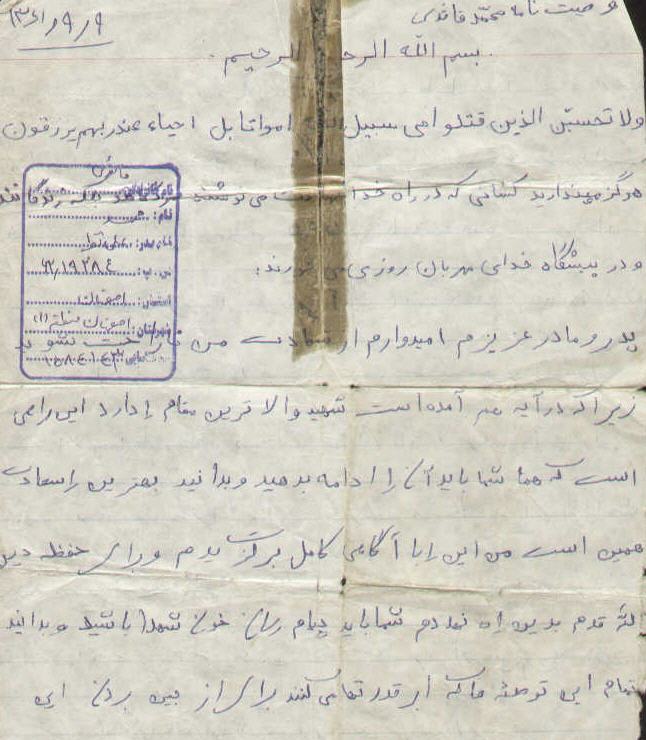 وصیت نامه محمد قائدی
۱۳۶۱/۹/۹
بسم الله الرحمن الرحیم
ولا تحسبن الذین قتلوا فی سبیل امواتا بل احیاء عند ربهم یرزقون
هرگز مپندارید کسانی که در راه خدا می نوشند بلکه زندگانند
و در پیشگاه خدای مهربان روزی می خورند:
پدر و مادر عزیزم امیدوارم از شهادت من ناراحت نشوید
زیرا که در آیه هم آمده است شهید والا ترین مقام را دارد این راهی
است که هما شما باید آن را ادامه بدهید و بدانید بهترین راه سعادت
همین است من این را با آگاهی کامل برگزیدم و برای حفظه دین
الله قدم بدین راه نهادم شما باید پیام رسان خون شهدا باشید و بدانید
تمام این توطئه ها که ابرقدرتها می کنند برای از بین بردن این
نام:
نام پدر:
استان: اصفهان
شهرستان: اصفهان